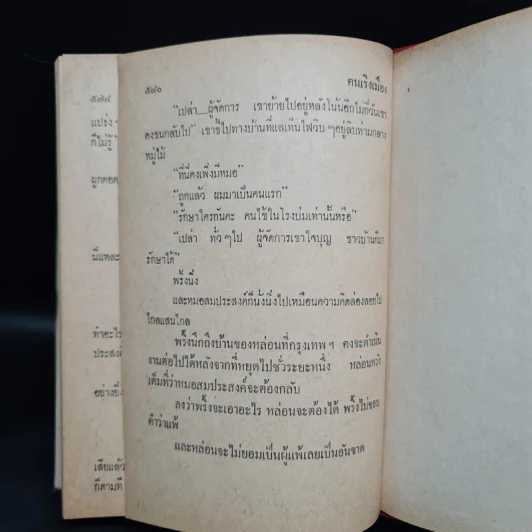 ๕๗๘
แปร่ง ๆ
ก็ไม่รู้
ผูกคอต
นี่แหละ
ทำอะไร
ประสงค์
อย่างยิ่ง
เสียแล้ว
ก็ตามที่
๕๘๐
คนเริงเมือง
“เปล่า....ผู้จัดการ เขาย้ายไปอยู่หลังในนี้อีกไม่กี่วันเขา
คงขนกลับไป” เขาชี้ไปทางบ้านที่แลเห็นไฟวิบ ๆอยู่ลิบท่ามกลาง
หมู่ไม้
“ที่นี่คงเพิ่งมีหมอ”
“ถูกแล้ว ผมมาเป็นคนแรก”
“รักษาใครกันคะ คนไข้ในโรงบ่มเท่านั้นหรือ”
“เปล่า ทั่ว ๆไป ผู้จัดการเขาใจบุญ ชาวบ้านก็มา
รักษาได้”
พริ้งนิ่ง
และหมอสมประสงค์ก็นั่งนิ่งไปเหมือนความคิดล่องลอยไป
ไกลแสนไกล
พริ้งนึกถึงบ้านของหล่อนที่กรุงเทพ ฯ คงจะดำเนิน
งานต่อไปได้หลังจากที่หยุดไปชั่วระยะหนึ่ง หล่อนหวัง
เต็มที่ว่าหมอสมประสงค์จะต้องกลับ
ลงว่าพริ้งจะเอาอะไร หล่อนจะต้องได้ พริ้งไม่ชอบ
คำว่าแพ้
และหล่อนจะไม่ยอมเป็นผู้แพ้เลยเป็นอันขาด